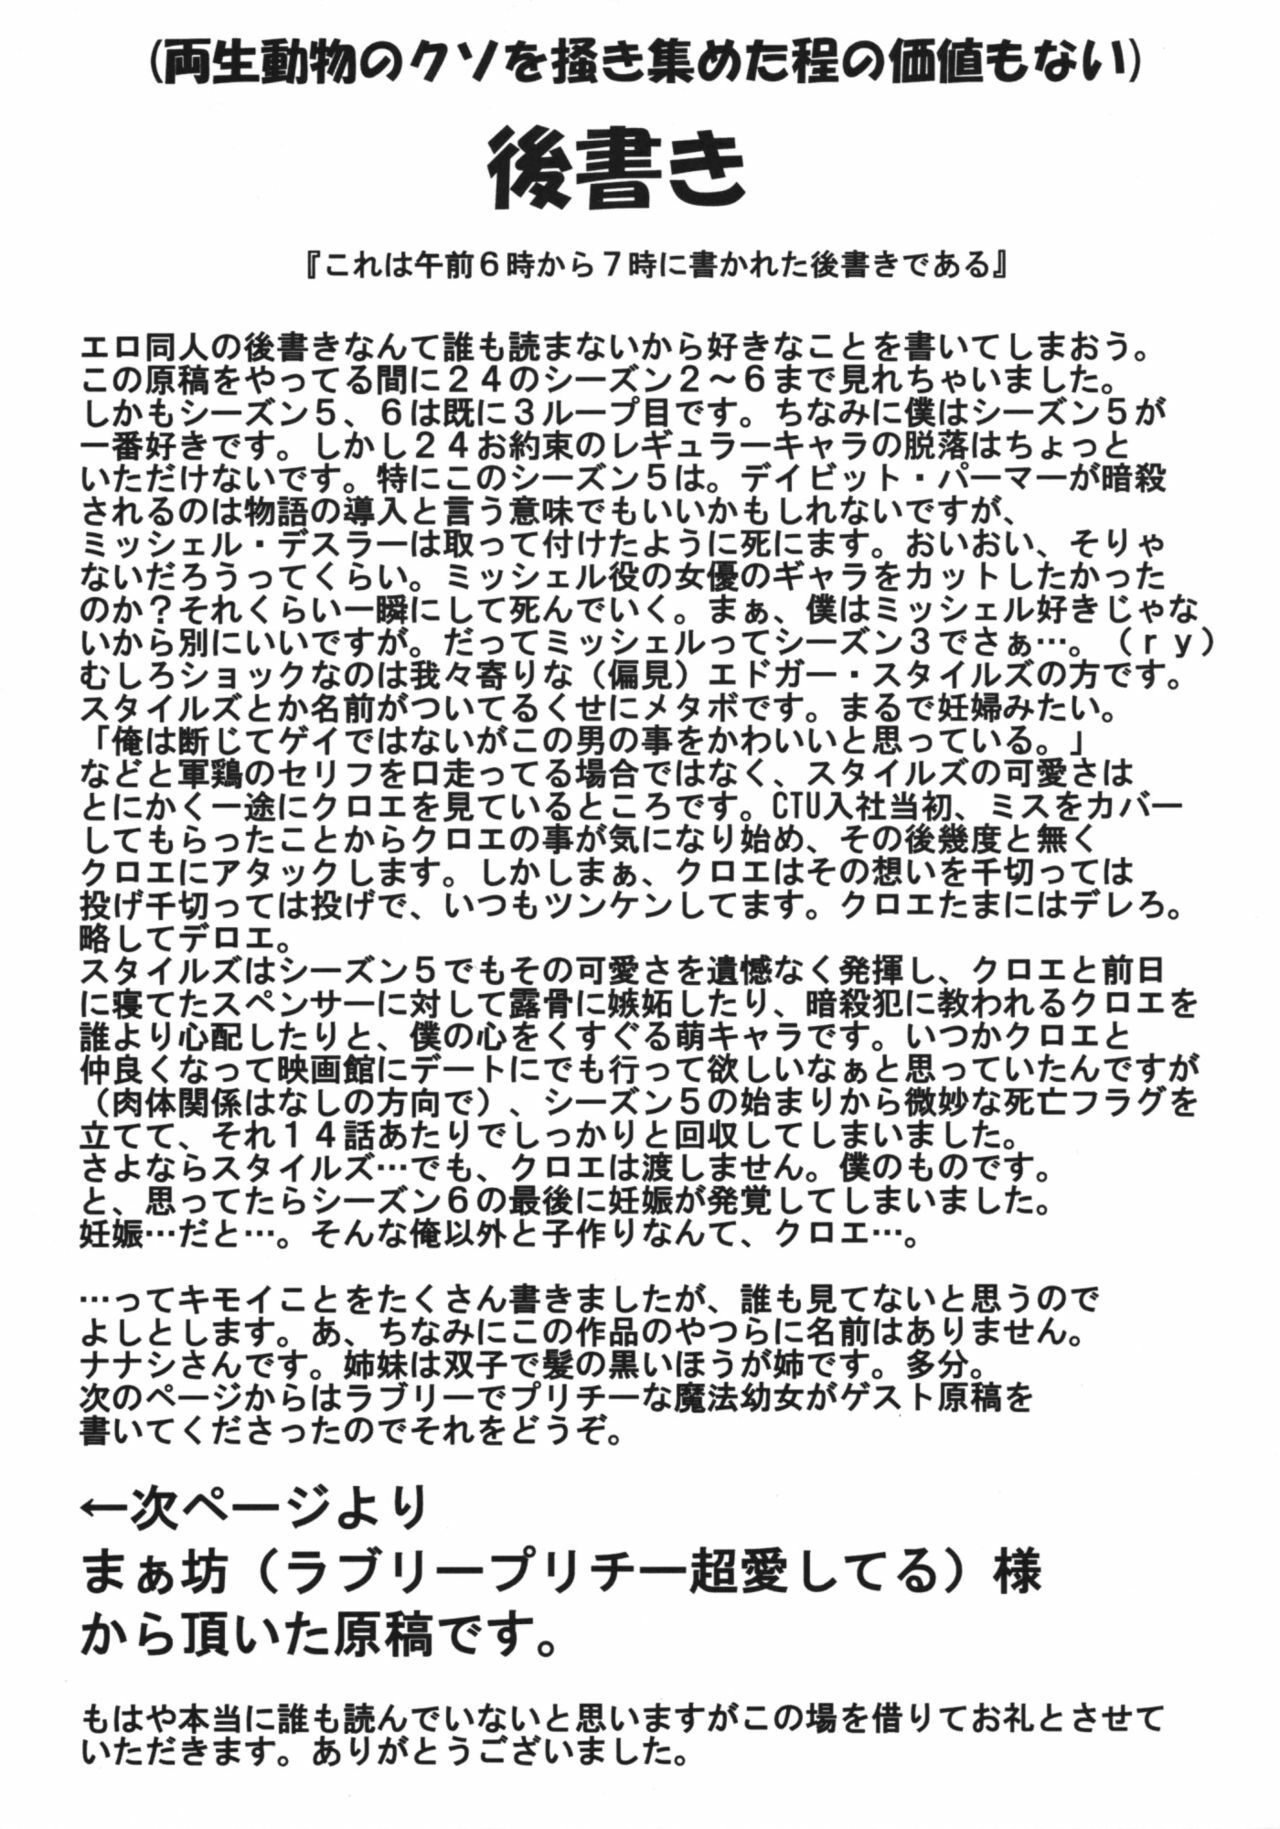 (両生動物のクソを掻き集めた程の価値もない)
後書き
『これは午前６時から７時に書かれた後書きである』
エロ同人の後書きなんて誰も読まないから好きなことを書いてしまおう。
この原稿をやってる間に２４のシーズン２～６まで見れちゃいました。
しかもシーズン５、６は既に３ループ目です。ちなみに僕はシーズン５が
一番好きです。しかし２４お約束のレギュラーキャラの脱落はちょっと
いただけないです。特にこのシーズン５は。デイビット・パーマーが暗殺
されるのは物語の導入と言う意味でもいいかもしれないですが、
ミッシェル・デスラーは取って付けたように死にます。おいおい、そりゃ
ないだろうってくらい。ミッシェル役の女優のギャラをカットしたかった
のか？それくらい一瞬にして死んでいく。まぁ、僕はミッシェル好きじゃな
いから別にいいですが。だってミッシェルってシーズン３でさぁ…。（ｒｙ）
むしろショックなのは我々寄りな（偏見）エドガー・スタイルズの方です。
スタイルズとか名前がついてるくせにメタボです。まるで妊婦みたい。
「俺は断じてゲイではないがこの男の事をかわいいと思っている。」
などと軍鶏のセリフを口走ってる場合ではなく、スタイルズの可愛さは
とにかく一途にクロエを見ているところです。CTU入社当初、ミスをカバー
してもらったことからクロエの事が気になり始め、その後幾度と無く
クロエにアタックします。しかしまぁ、クロエはその想いを千切っては
投げ千切っては投げで、いつもツンケンしてます。クロエたまにはデレろ。
略してデロエ。
スタイルズはシーズン５でもその可愛さを遺憾なく発揮し、クロエと前日
に寝てたスペンサーに対して露骨に嫉妬したり、暗殺犯に教われるクロエを
誰より心配したりと、僕の心をくすぐる萌キャラです。いつかクロエと
仲良くなって映画館にデートにでも行って欲しいなぁと思っていたんですが
（肉体関係はなしの方向で）、シーズン５の始まりから微妙な死亡フラグを
立てて、それ１４話あたりでしっかりと回収してしまいました。
さよならスタイルズ…でも、クロエは渡しません。僕のものです。
と、思ってたらシーズン６の最後に妊娠が発覚してしまいました。
妊娠…だと…。そんな俺以外と子作りなんて、クロエ…。
…ってキモイことをたくさん書きましたが、誰も見てないと思うので
よしとします。あ、ちなみにこの作品のやつらに名前はありません。
ナナシさんです。姉妹は双子で髪の黒いほうが姉です。多分。
次のページからはラブリーでプリチーな魔法幼女がゲスト原稿を
書いてくださったのでそれをどうぞ。
←次ページより
まぁ坊（ラブリープリチー超愛してる）様
から頂いた原稿です。
もはや本当に誰も読んでいないと思いますがこの場を借りてお礼とさせて
いただきます。ありがとうございました。